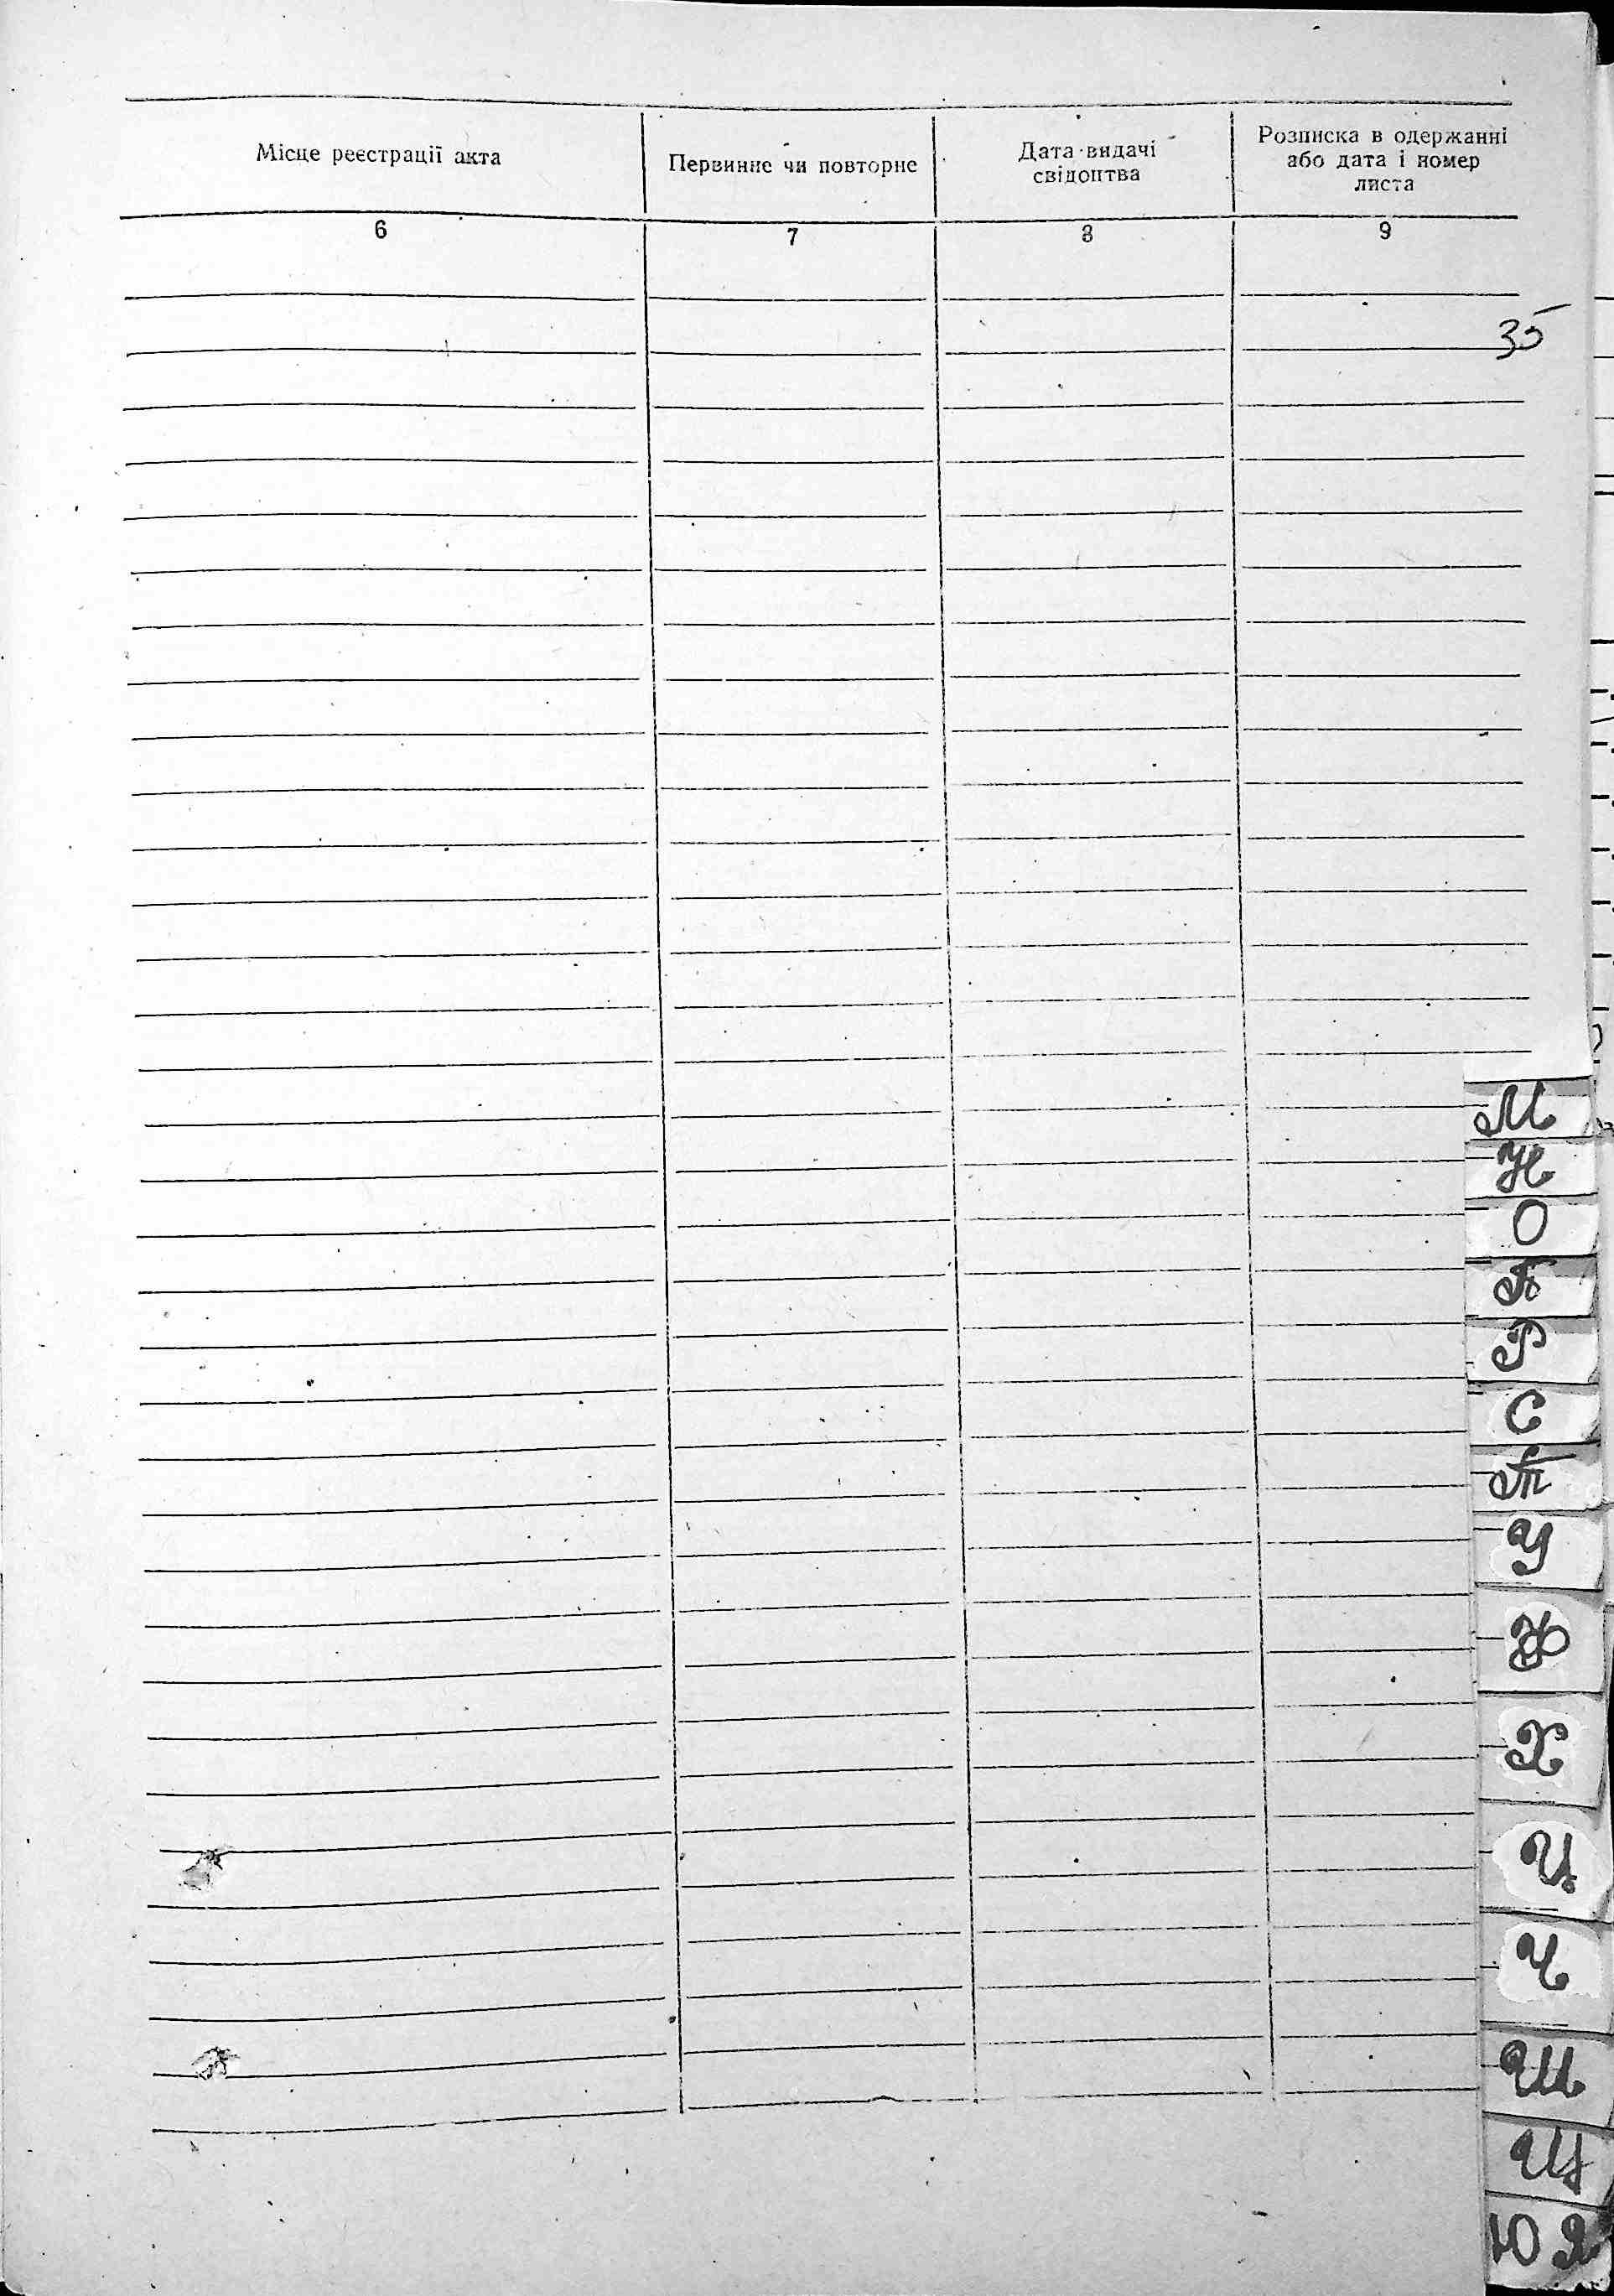 Місце реєстрації акта
Первинне чи повторне
Дата видачі
свідоцтва
Розписка в одержанні
або дата і номер
листа
6
7
8
9
35
М
Н
О
П
Р
С
Т
У
Ф
Х
Ц
Ч
Ш
Щ
Ю Я